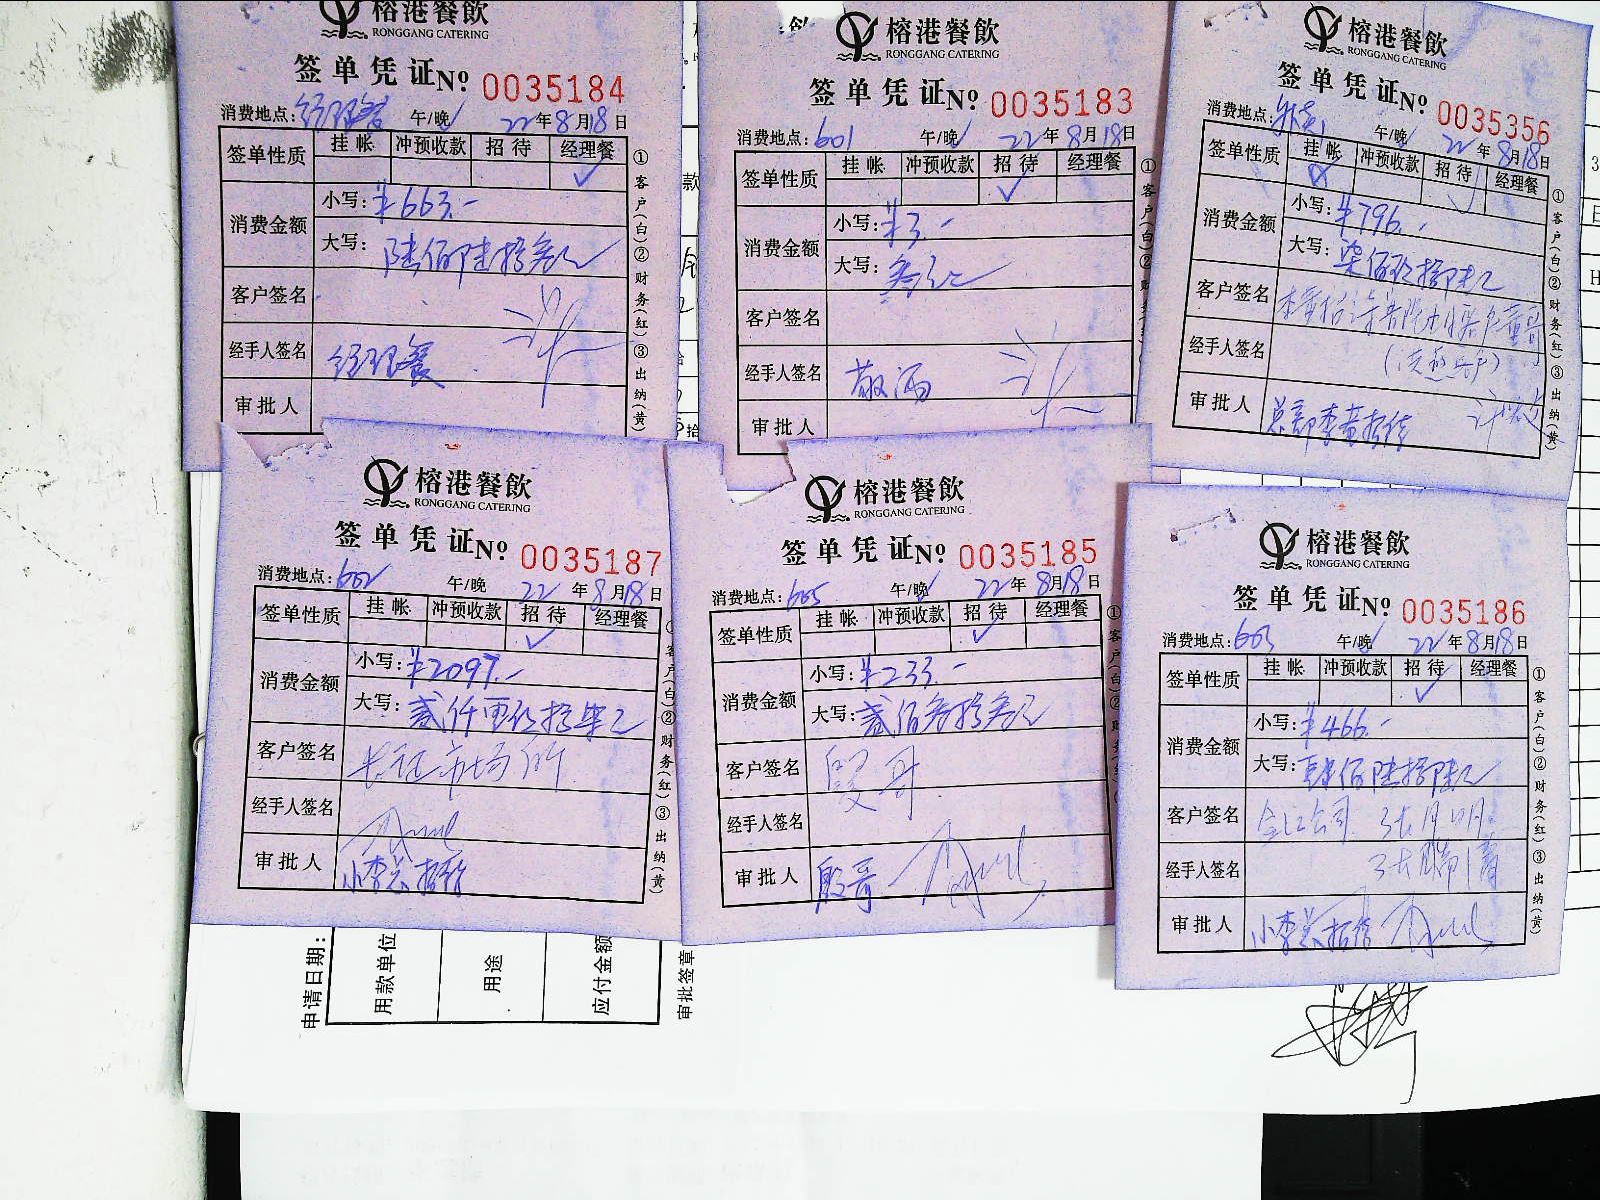 榕港餐飲
RONGGANG CATERING
签单凭证№ 0035184
消费地点:经理餐 午/晚 22年8月18日
签单性质 挂帐 冲预收款 招待 经理餐
消费金额 小写:¥663.-
大写:陆佰陆拾叁元
客户签名
经手人签名 经理餐
审批人
①客户(白)②财务(红)③出纳(黄)
榕港餐飲
RONGGANG CATERING
签单凭证№ 0035183
消费地点:601 午/晚 22年8月18日
签单性质 挂帐 冲预收款 招待 经理餐
消费金额 小写:¥3.-
大写:叁元
客户签名
经手人签名 敬酒
审批人
①客户(白)②财务(红)③出纳(黄)
榕港餐飲
RONGGANG CATERING
签单凭证№ 0035356
消费地点: 午/晚 22年8月18日
签单性质 挂帐 冲预收款 招待 经理餐
消费金额 小写:¥796.-
大写:柒佰玖拾陆元
客户签名
经手人签名
审批人 总部李董招待
①客户(白)②财务(红)③出纳(黄)
榕港餐飲
RONGGANG CATERING
签单凭证№ 0035187
消费地点:602 午/晚 22年8月18日
签单性质 挂帐 冲预收款 招待 经理餐
消费金额 小写:¥2097.-
大写:贰仟零玖拾柒元
客户签名 市场所
经手人签名
审批人 小李总招待
①客户(白)②财务(红)③出纳(黄)
榕港餐飲
RONGGANG CATERING
签单凭证№ 0035185
消费地点:605 午/晚 22年8月18日
签单性质 挂帐 冲预收款 招待 经理餐
消费金额 小写:¥233.-
大写:贰佰叁拾叁元
客户签名 殷哥
经手人签名
审批人 殷哥
①客户(白)②财务(红)③出纳(黄)
榕港餐飲
RONGGANG CATERING
签单凭证№ 0035186
消费地点:603 午/晚 22年8月18日
签单性质 挂帐 冲预收款 招待 经理餐
消费金额 小写:¥466.-
大写:肆佰陆拾陆元
客户签名 公司
经手人签名
审批人 小李总招待
①客户(白)②财务(红)③出纳(黄)
申请日期:
用款单位
用途
应付金额
审批签章